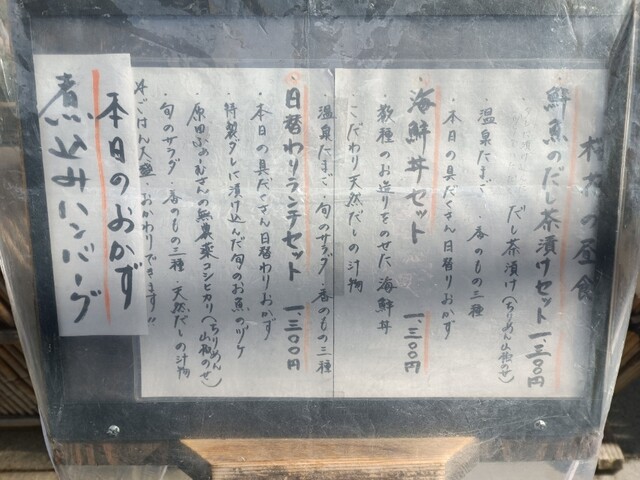 の昼食
鮮魚のだし茶漬けセット 一、三〇〇円
だし茶漬け(ちりめん山椒のせ)
・温泉たまご ・香のもの三種
・本日の具だくさん日替りおかず
海鮮丼セット 一、三〇〇円
・数種のお造りをのせた海鮮丼
・こだわり天然だしの汁物
温泉たまご・旬のサラダ・香のもの三種
日替わりランチセット 一、三〇〇円
・本日の具だくさん日替わりおかず
・特製ダレに漬け込んだ旬のお魚のヅケ
・原田ふぁむさんの無農薬コシヒカリ(ちりめん山椒のせ)
・旬のサラダ・香のもの三種・天然だしの汁物
ごはん大盛・おかわりできます!!
本日のおかず
煮込みハンバーグ